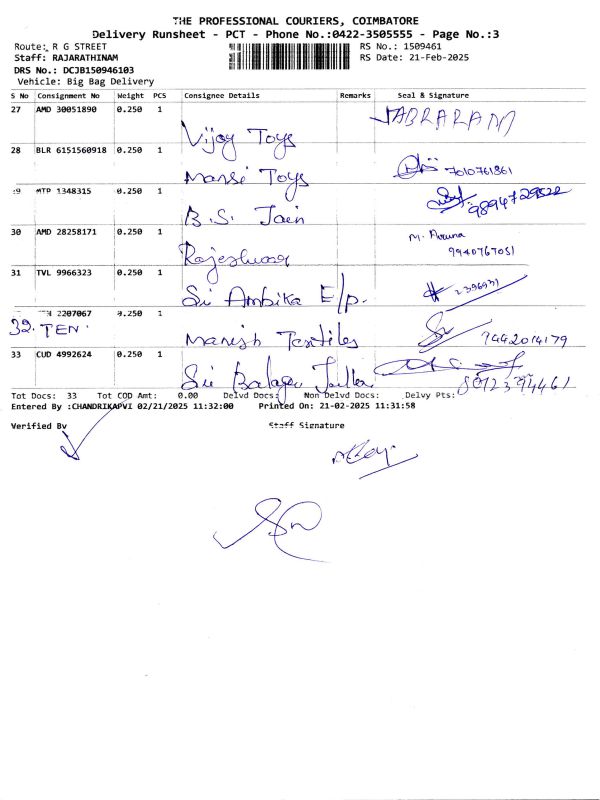 THE PROFESSIONAL COURIERS, COIMBATORE
Delivery Runsheet - PCT - Phone No.:0422-3505555 - Page No.:3
Route: R G STREET
RS No.: 1509461
Staff: RAJARATHINAM
RS Date: 21-Feb-2025
DRS No.: DCJB150946103
Vehicle: Big Bag Delivery
S No Consignment No Weight PCS Consignee Details Remarks Seal & Signature
27 AMD 30051890 0.250 1
Vijay Toys JABRARAM
28 BLR 6151560918 0.250 1
Mansi Toys 7010761861
29 MTP 1348315 0.250 1
B.S. Jain 9894729522
30 AMD 28258171 0.250 1
Rajeshwar M. Aruna
9940767051
31 TVL 9966323 0.250 1
Sri Ambika E/p. 2396931
2207067 0.250 1
32. TEN
Manish Textiles 9442014179
33 CUD 4992624 0.250 1
Sri Balaji
Tot Docs: 33 Tot COD Amt: 0.00 Delvd Docs: Non Delvd Docs: Delvy Pts:
Entered By :CHANDRIKAPVI 02/21/2025 11:32:00 Printed On: 21-02-2025 11:31:58
Verified By Staff Signature